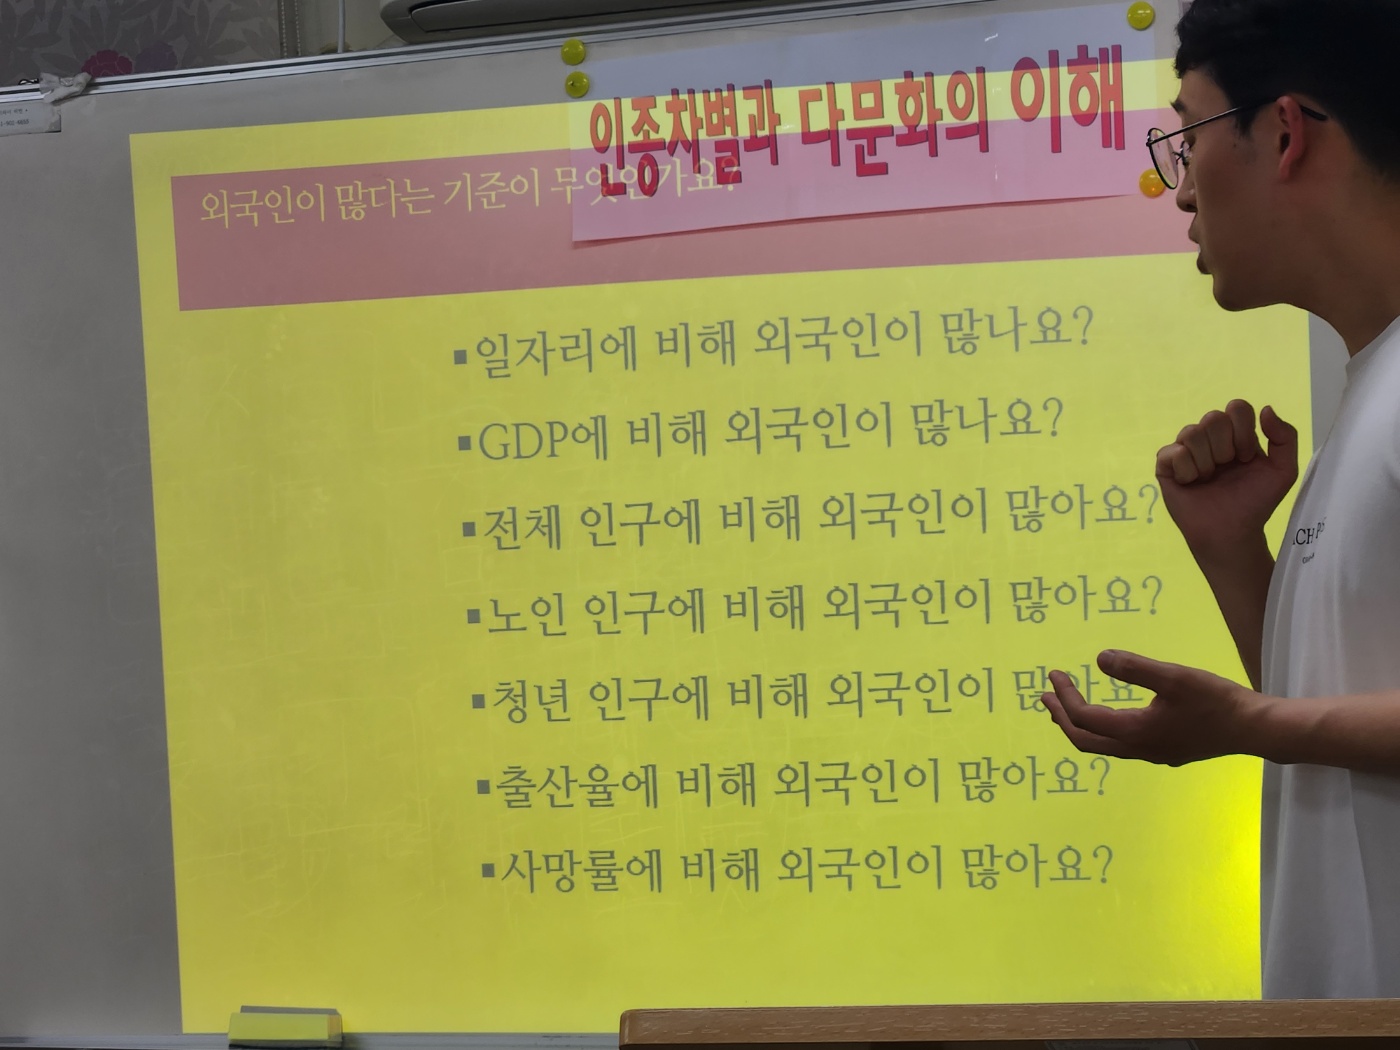 인종차별과 다문화의 이해
외국인이 많다는 기준이 무엇인가요?
▪일자리에 비해 외국인이 많나요?
▪GDP에 비해 외국인이 많나요?
▪전체 인구에 비해 외국인이 많아요?
▪노인 인구에 비해 외국인이 많아요?
▪청년 인구에 비해 외국인이 많아요
▪출산율에 비해 외국인이 많아요?
▪사망률에 비해 외국인이 많아요?